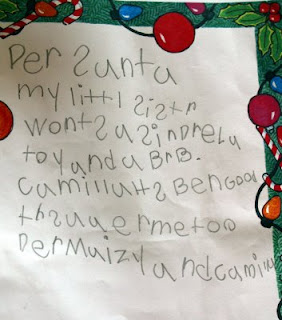 Der Santa
my littl Sistr
wonts a Sindrela
toy and a BrB.
Camilla HaS Ben GOOd
thS yaer me too
Der Maizy and Camilla